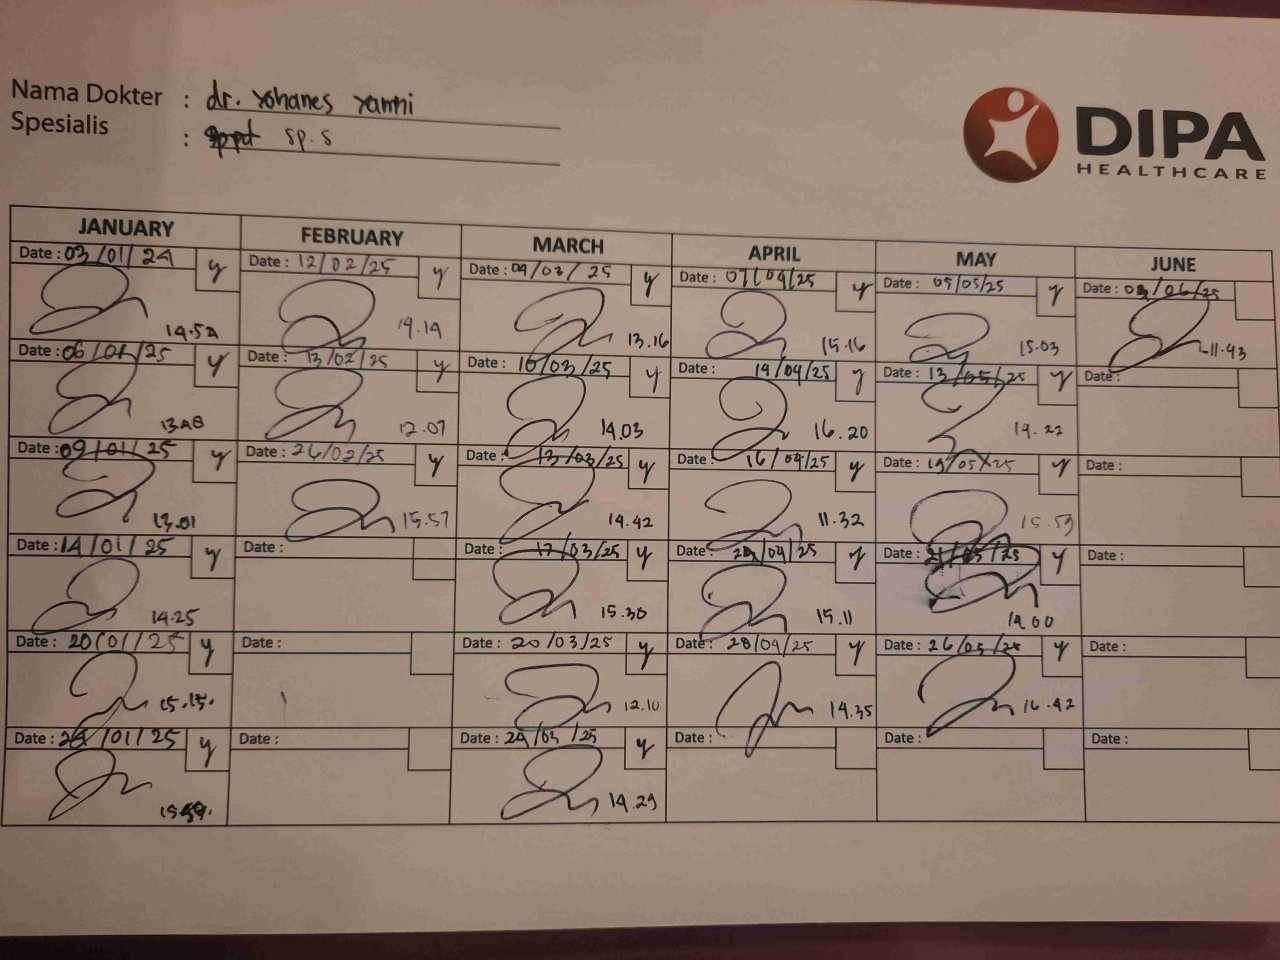 Nama Dokter : dr. Yohanes Yanni
Spesialis : sp.s
DIPA
HEALTHCARE
JANUARY FEBRUARY MARCH APRIL MAY JUNE
Date : 03/01/24 y Date : 12/02/25 y Date : 04/03/25 y Date : 07/04/25 y Date : 05/05/25 y Date : 03/06/25
14.52 14.14 13.16 15.16 15.03 11.43
Date : 06/01/25 y Date : 13/02/25 y Date : 10/03/25 y Date : 14/04/25 y Date : 13/05/25 y Date :
12.07 14.03 16.20 14.22
Date : 09/01/25 y Date : 26/02/25 y Date : 13/03/25 y Date : 16/04/25 y Date : 19/05/25 Date :
13.01 15.57 14.42 11.32 15.53
Date : 14/01/25 y Date : Date : 17/03/25 y Date : /04/25 y Date : 21/05/25 y Date :
14.25 15.30 15.11 14.00
Date : 20/01/25 y Date : Date : 20/03/25 y Date : 28/04/25 y Date : 26/05/25 y Date :
15.15. 12.10 14.35 16.42
Date : /01/25 y Date : Date : 24/03/25 y Date : Date : Date :
14.29